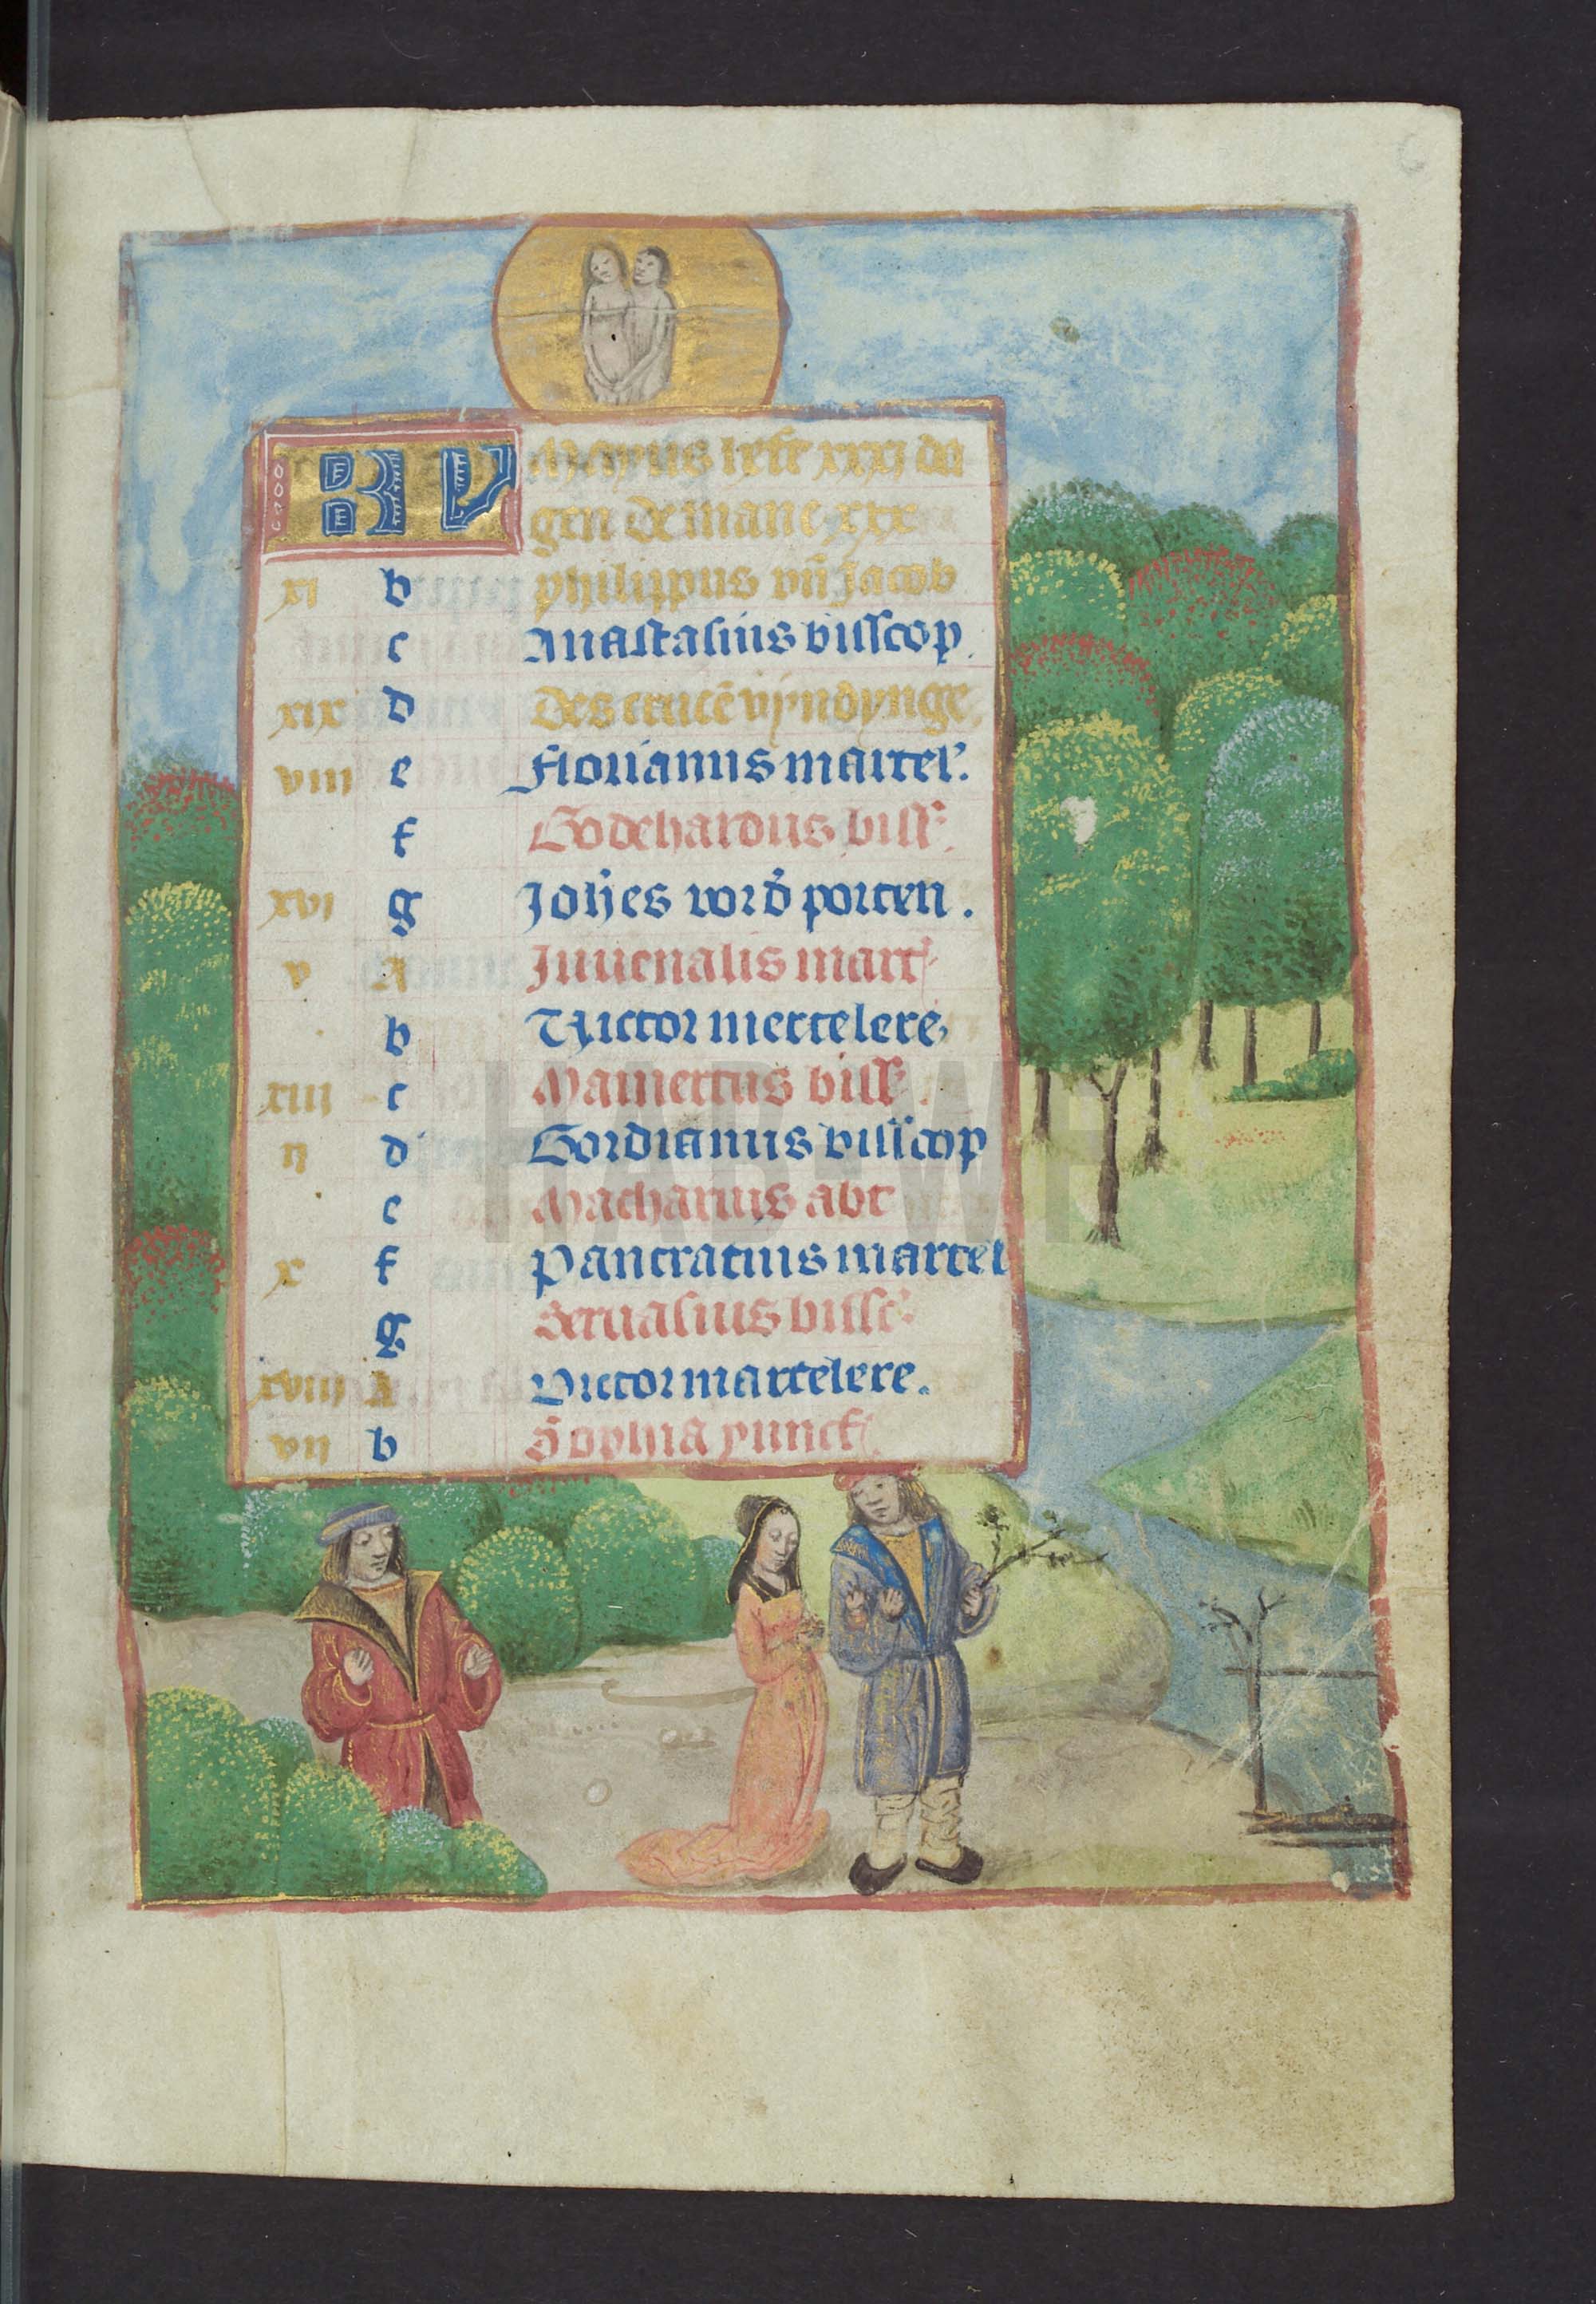 KL Meyus heft xxxj da
gen de mane xxx
xi b philippus vñ Jacob
c Anastasius bisscop.
xix d des crucē vyndynge.
viii e Florianus martel'.
f Godehardus biss'.
xvi g Joh̄es vor d' porten.
v A Juuenalis mart'
b Victor mertelere.
xiii c Mamertus biss'.
ii d Gordianus bisscop
e Macharius abt
x f Pancratius martel
g Seruasius bissc'.
xviii A Victor martelere.
vii b Sophia yuncf'.
HAB WF
6